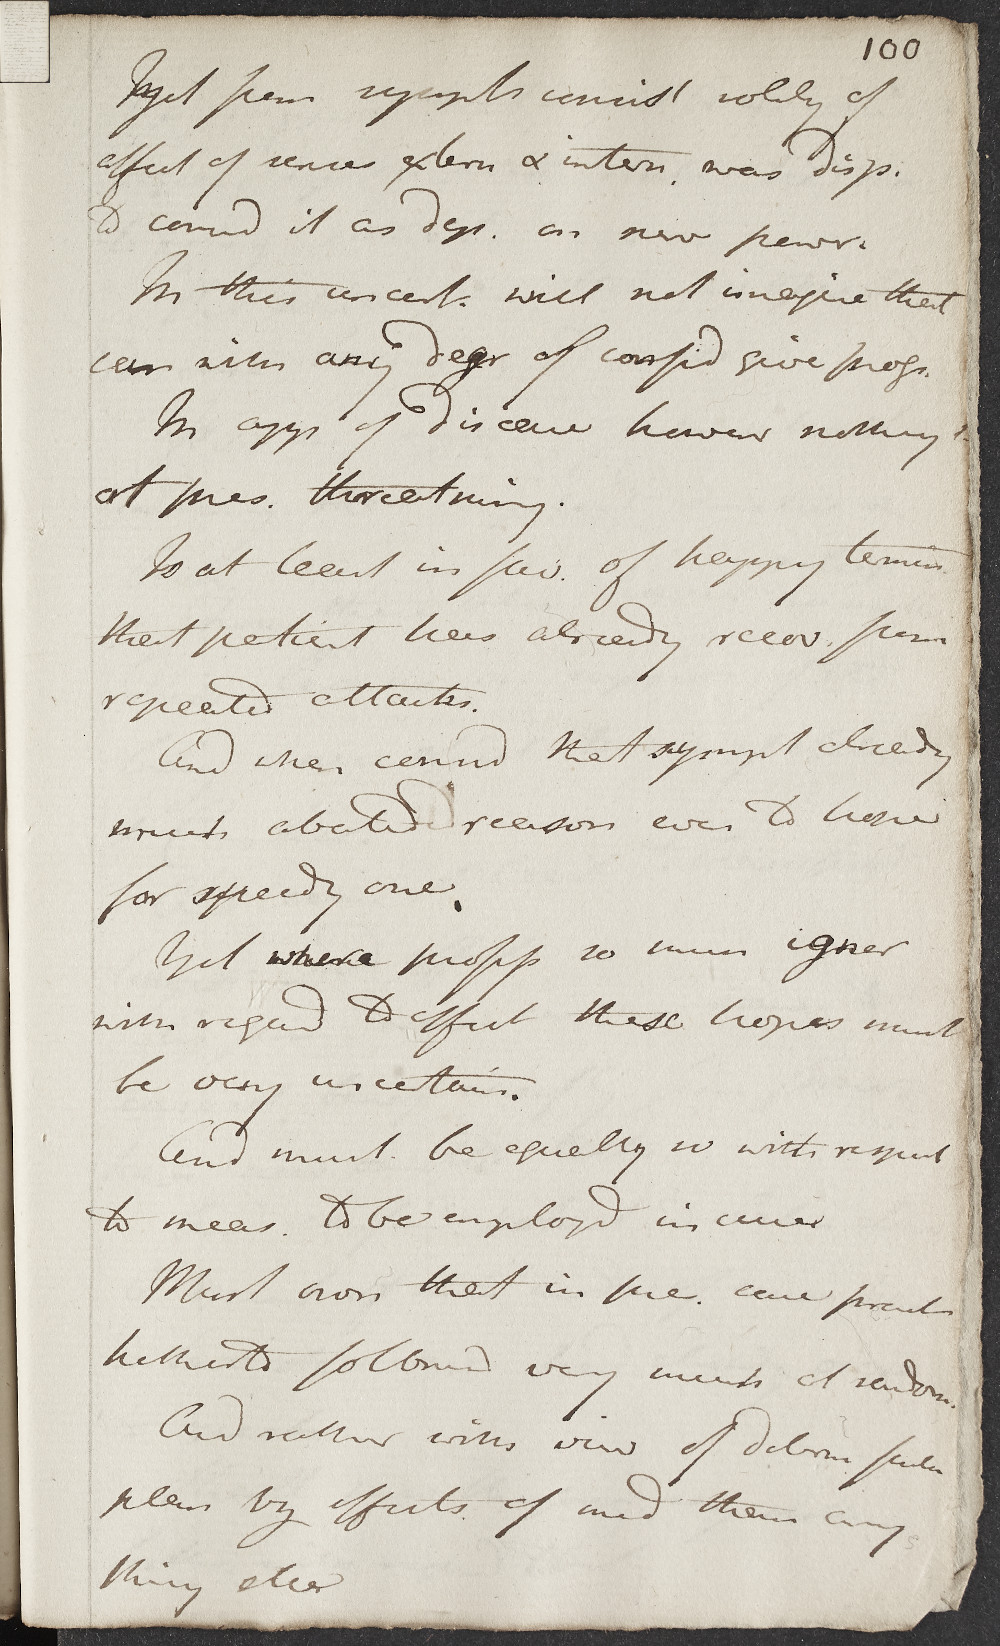 100
Yet from sympts consist solely of
affect of senses extern & intern. was disp.
to consid it as dep. on nerv power.
In this uncert. will not imagine that
can with any degr of confid give progn.
In app of disease however nothing
at pres. threatning.
Is at least in fav. of happy termin
that patient has already recov. from
repeated attacks.
And when consid that sympt already
much abated reason even to hope
for speedy one.
Yet where profess so much ignor
with regard to affect these hopes must
be very uncertain.
And must be equally so with respect
to meas. to be employd in cure
Must own that in pre. case pract
hitherto followed very much at random.
And rather with view of determ future
plan by effects of med than any
thing else